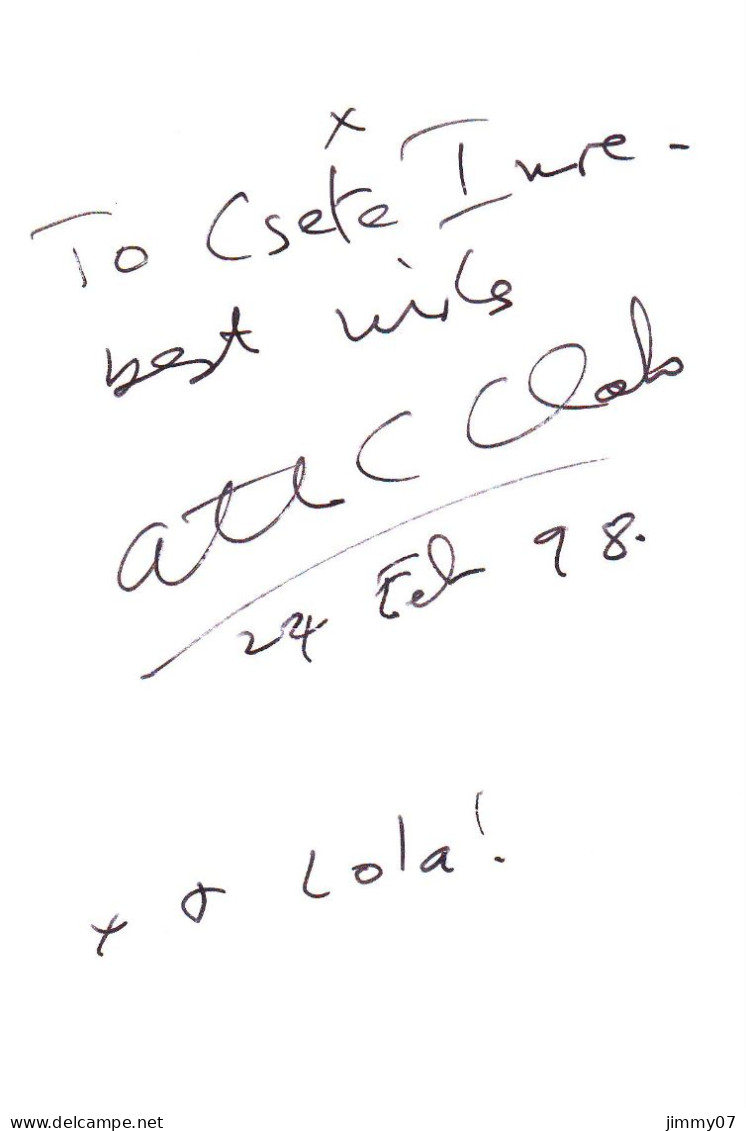 x
To Csete Imre -
best wishes
Arthur C Clarke
24 Feb 98.
x & Lola!
delcampe.net
jimmy07